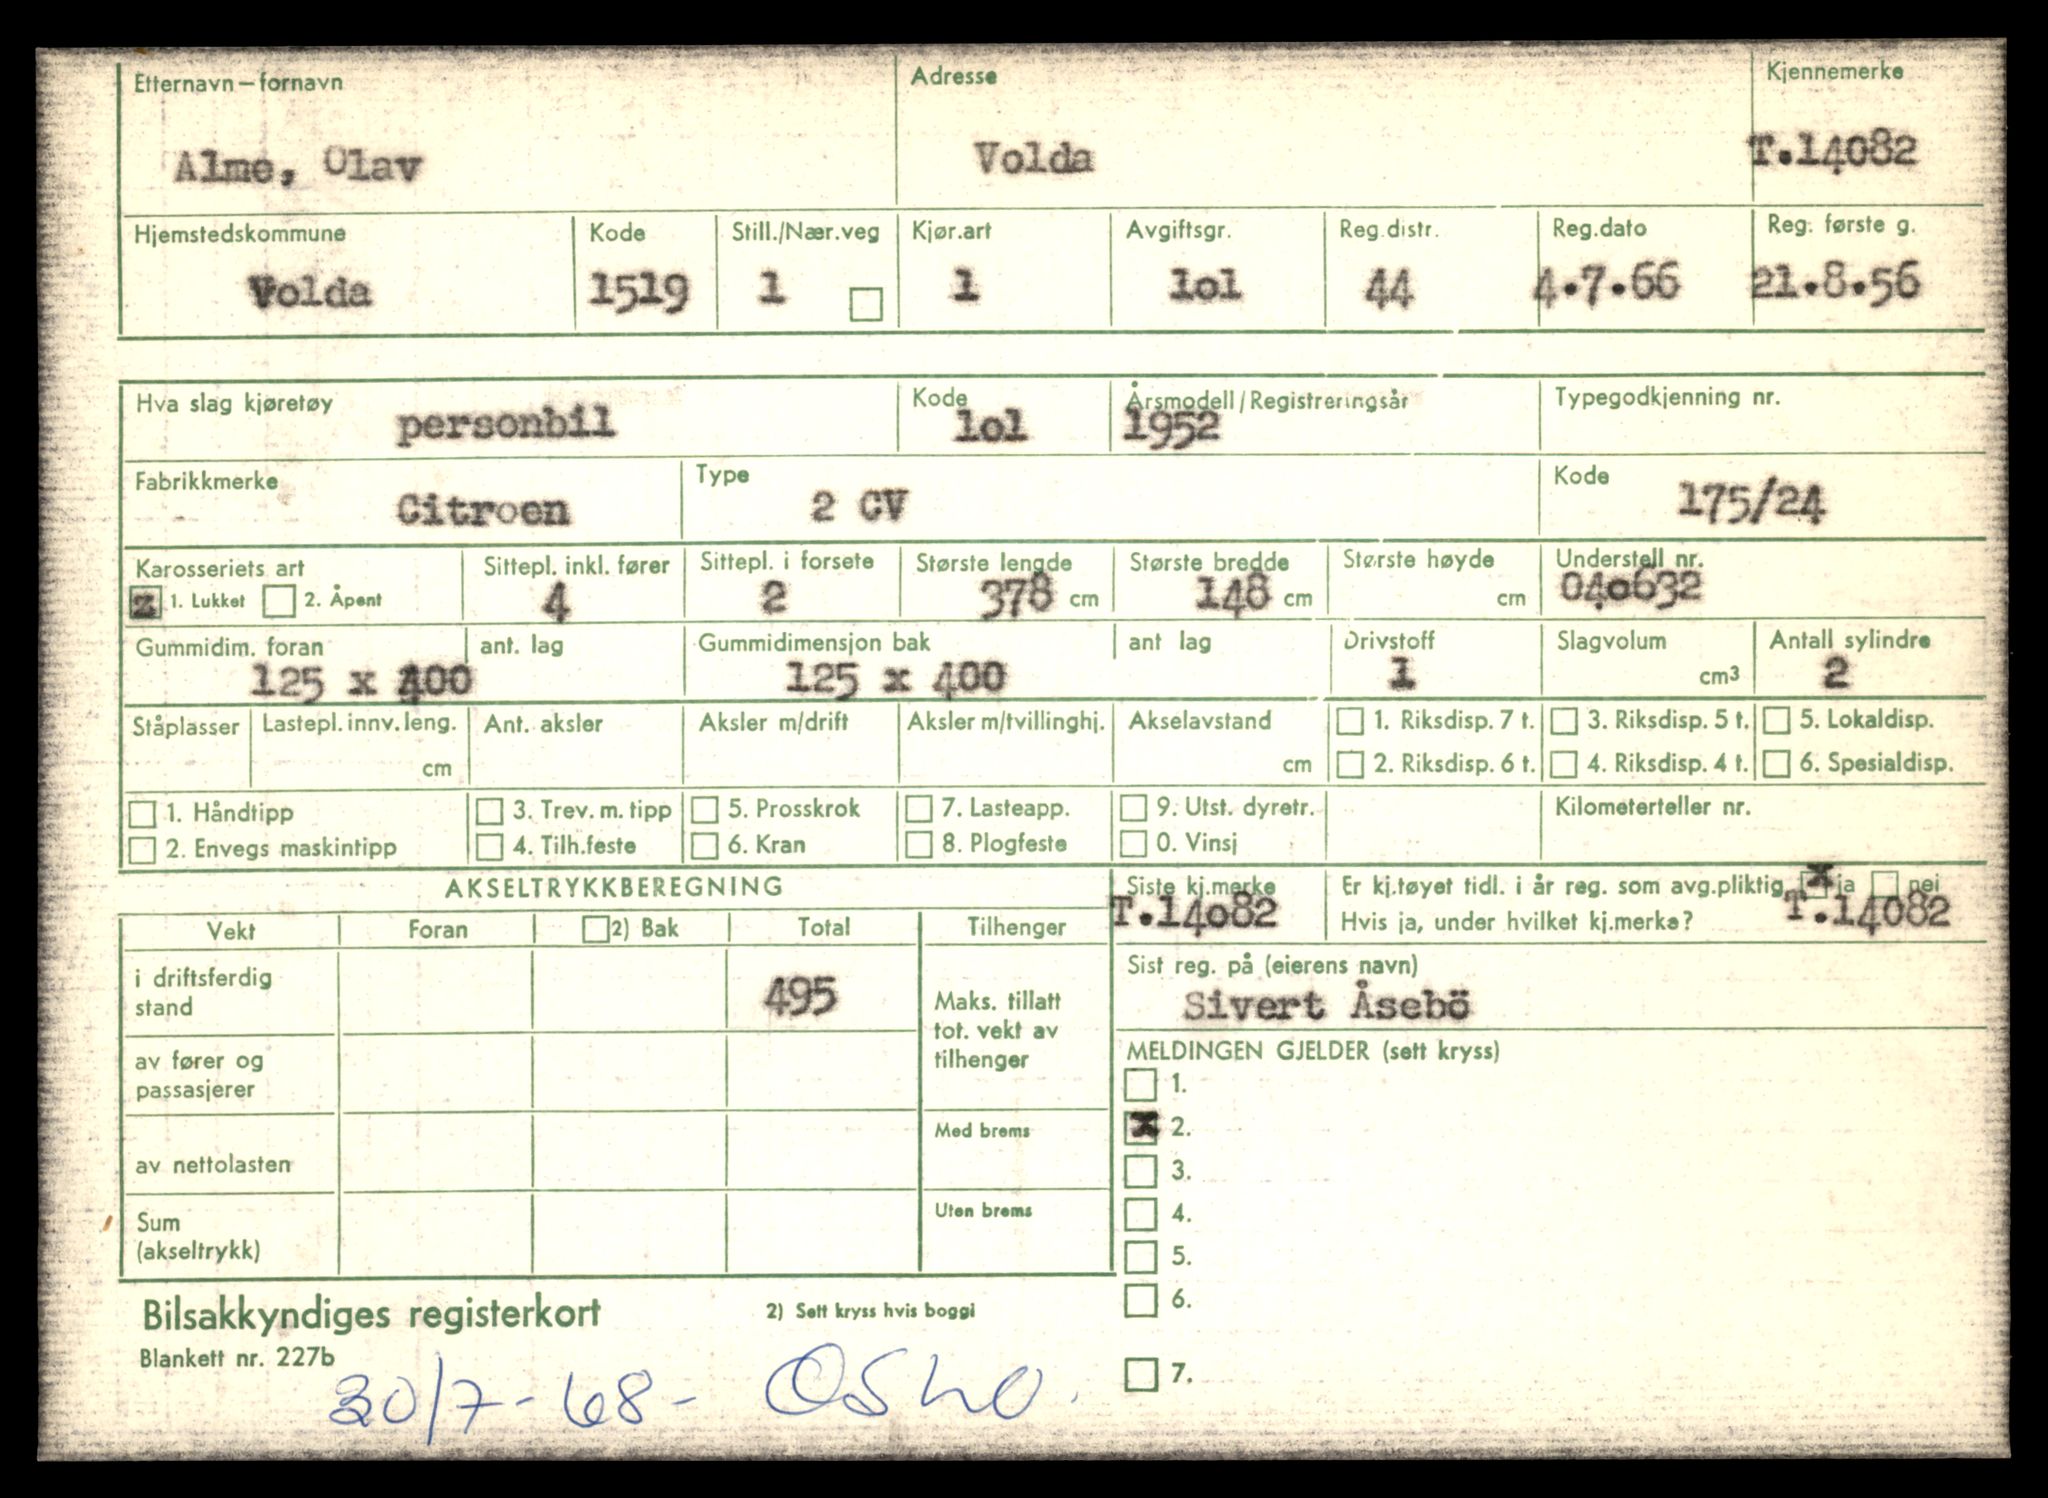 Etternavn—fornavn Adresse Kjennemerke
Alme, Olav Volda T.14082
Hjemstedskommune Kode Still./Nær.veg Kjør.art Avgiftsgr. Reg.distr. Reg.dato Reg. første g.
Volda 1519 1 1 lol 44 4.7.66 21.8.56
Hva slag kjøretøy Kode Årsmodell/Registreringsår Typegodkjenning nr.
personbil lol 1952
Fabrikkmerke Type Kode
Citroen 2 CV 175/24
Karosseriets art Sittepl. inkl. fører Sittepl. i forsete Største lengde Største bredde Største høyde Understell nr.
z 1. Lukket 2. Åpent 4 2 378 cm 148 cm cm 040632
Gummidim. foran ant. lag Gummidimensjon bak ant lag Drivstoff Slagvolum Antall sylindre
125 x 400 125 x 400 1 cm3 2
Ståplasser Lastepl. innv. leng. Ant. aksler Aksler m/drift Aksler m/tvillinghj. Akselavstand 1. Riksdisp. 7 t. 3. Riksdisp. 5 t. 5. Lokaldisp.
cm cm 2. Riksdisp. 6 t. 4. Riksdisp. 4 t. 6. Spesialdisp.
1. Håndtipp 3. Trev. m. tipp 5. Prosskrok 7. Lasteapp. 9. Utst. dyretr. Kilometerteller nr.
2. Envegs maskintipp 4. Tilh.feste 6. Kran 8. Plogfeste 0. Vinsj
AKSELTRYKKBEREGNING Siste kj.merke Er kj.tøyet tidl. i år reg. som avg.pliktig x ja nei
T.14082 Hvis ja, under hvilket kj.merke? T.14082
Vekt Foran 2) Bak Total Tilhenger
Sist reg. på (eierens navn)
Sivert Åsebö
i driftsferdig
stand 495
Maks. tillatt
tot. vekt av
tilhenger
av fører og
passasjerer
Med brems
av nettolasten
Uten brems
Sum
(akseltrykk)
MELDINGEN GJELDER (sett kryss)
1.
x 2.
3.
4.
5.
6.
7.
Bilsakkyndiges registerkort 2) Sett kryss hvis boggi
Blankett nr. 227b
30/7-68- Oslo.